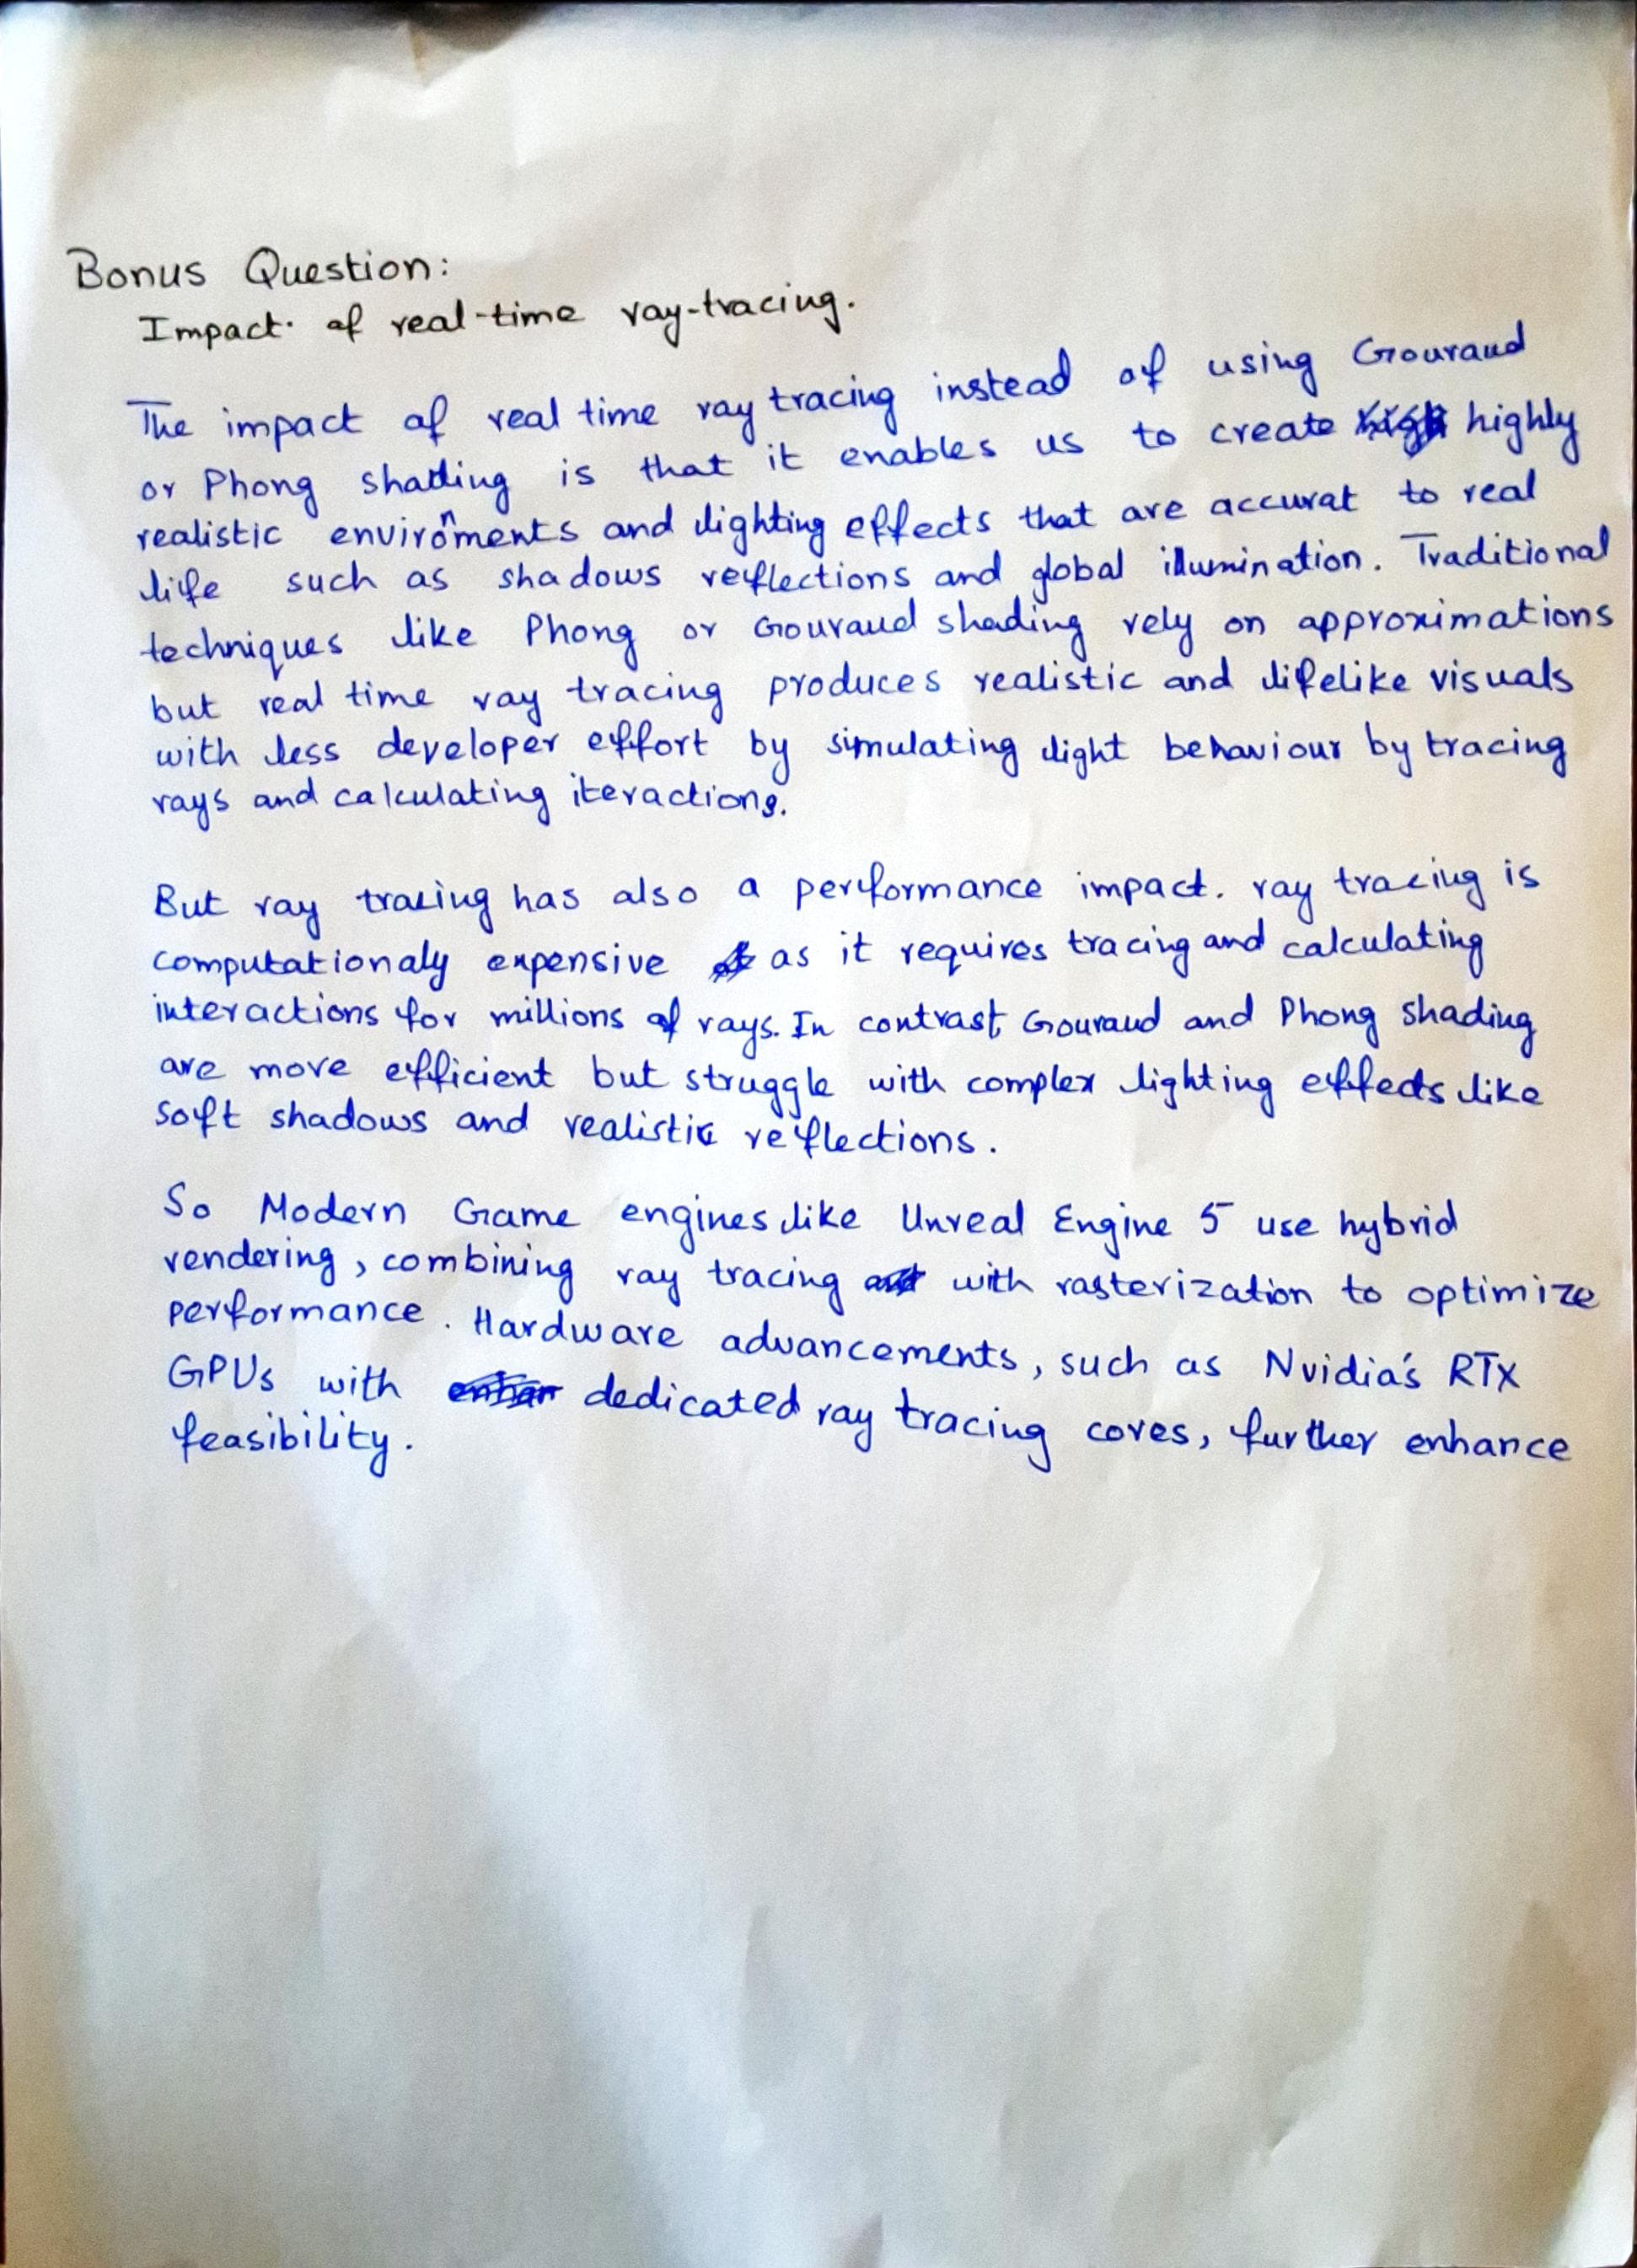 Bonus Question:
Impact. of real-time ray-tracing.
The impact of real time ray tracing instead of using Gouraud
or Phong shading is that it enables us to create high highly
realistic environments and lighting effects that are accurat to real
life such as shadows reflections and global illumination. Traditional
techniques like Phong or Gouraud shading rely on approximations
but real time ray tracing produces realistic and lifelike visuals
with less developer effort by simulating light behaviour by tracing
rays and calculating iteractions.
But ray tracing has also a performance impact. ray tracing is
computationaly expensive as it requires tracing and calculating
interactions for millions of rays. In contrast Gouraud and Phong shading
are more efficient but struggle with complex lighting effects like
soft shadows and realistic reflections.
So Modern Game engines like Unreal Engine 5 use hybrid
rendering, combining ray tracing and with rasterization to optimize
performance. Hardware advancements, such as Nvidia's RTX
GPUs with enhan dedicated ray tracing cores, further enhance
feasibility.